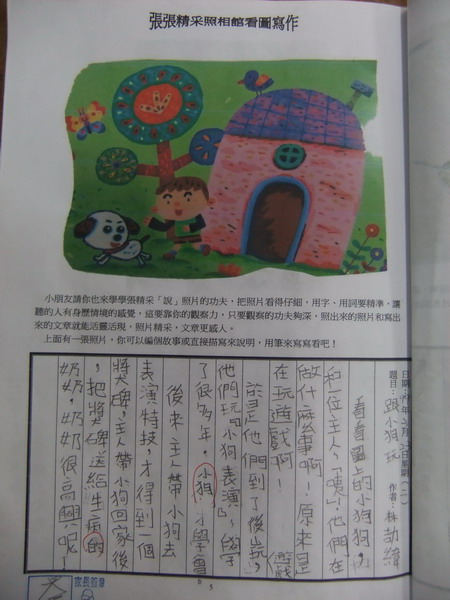 張張精采照相館看圖寫作
小朋友請你也來學學張精采「說」照片的功夫,把照片看得仔細,用字、用詞要精準,讓
聽的人有身歷情境的感覺,這要靠你的觀察力,只要觀察的功夫夠深,照出來的照片和寫出
來的文章就能活靈活現,照片精采,文章更感人。
上面有一張照片,你可以編個故事或直接描寫來說明,用筆來寫寫看吧!
題目:跟小狗玩 作者:林
看看圖上的小狗狗,
和一位主人,「咦」他們在
做什麼事啊!原來是
在玩遊戲啊!
於是他們到了後山玩,
他們玩「小狗表演」,學
了很多年,小狗才學會
後來主人帶小狗去
表演特技,才得到一個
獎牌,主人帶小狗回家後
,把獎牌送給生病的
奶奶,奶奶很高興呢!
遊戲
家長簽章
5